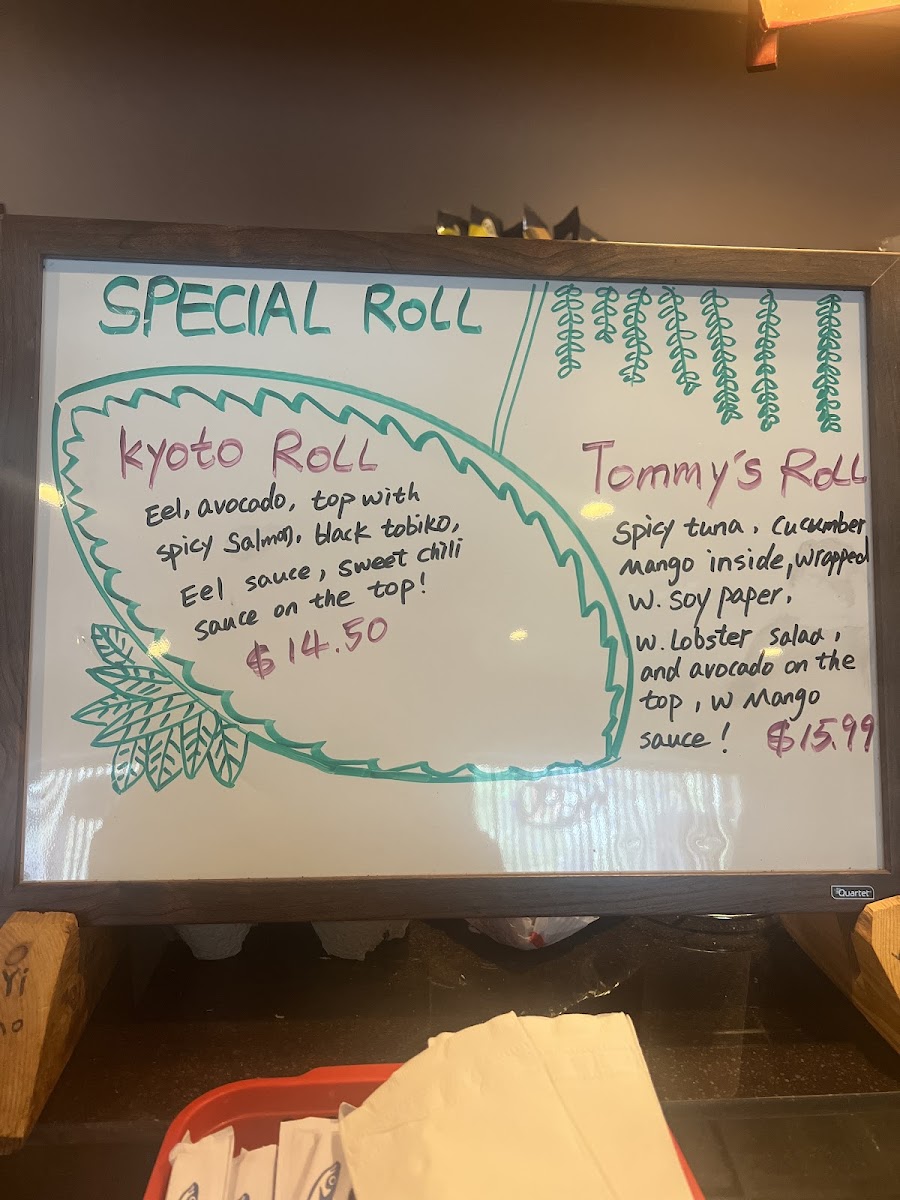 SPECIAL ROLL
Kyoto Roll
Eel, avocado, top with
spicy Salmon, black tobiko,
Eel sauce, sweet chili
sauce on the top!
$14.50
Tommy's Roll
spicy tuna, Cucumber
Mango inside, wrapped
w. soy paper,
w. Lobster salad,
and avocado on the
top, w Mango
sauce! $15.99
Quartet
Yi